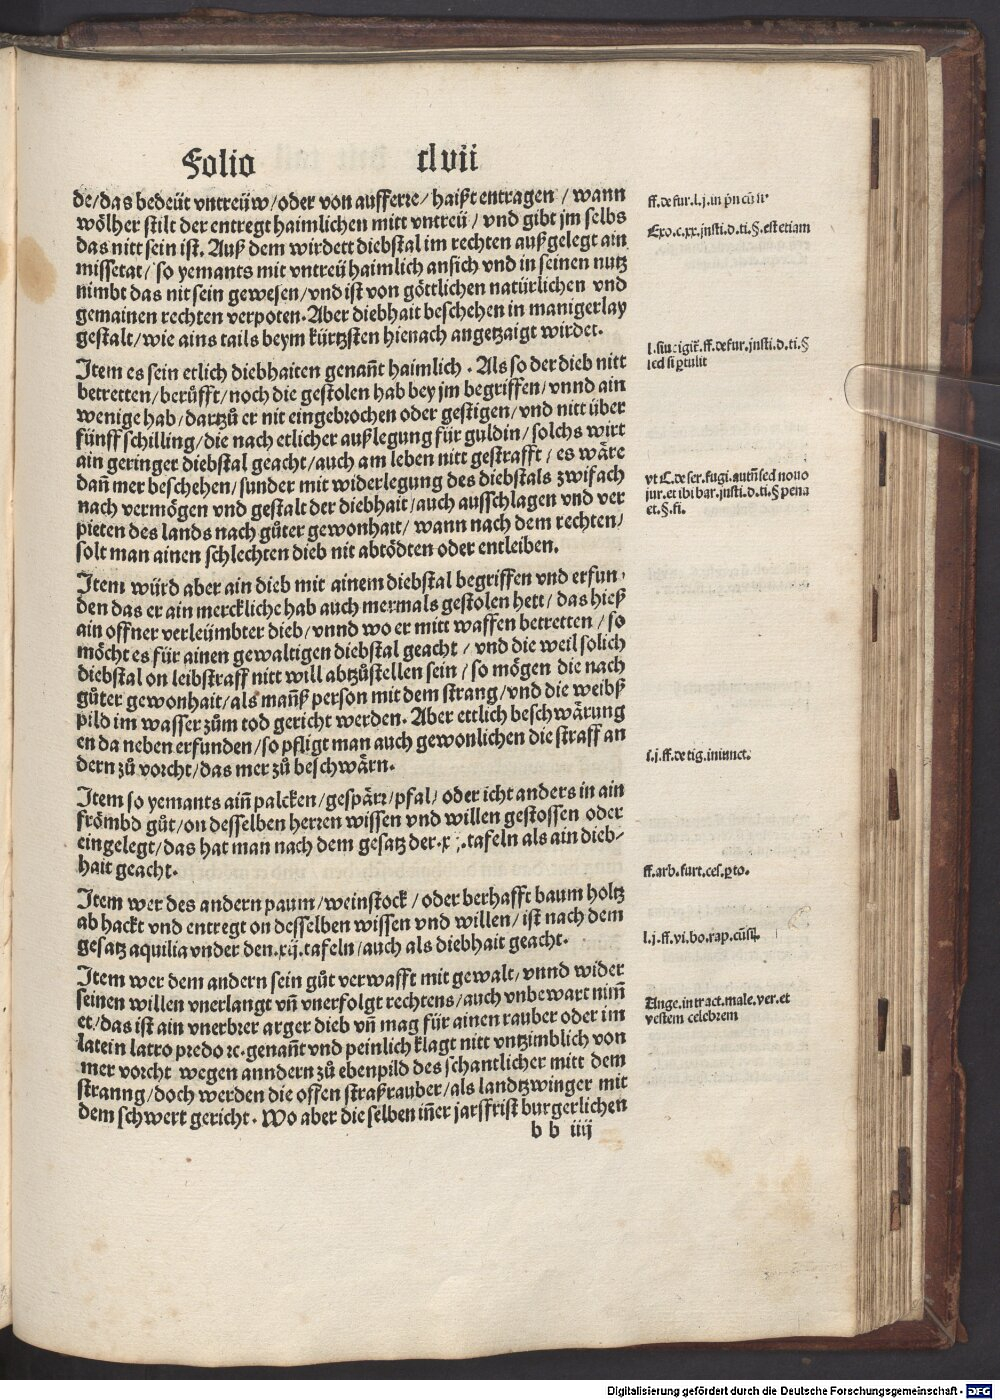 Folio clvii
de/das bedeüt vntreüw/oder von aufferre/haißt entragen/wann
wölher stilt der entregt haimlichen mitt vntreü/vnd gibt jm selbs
das nitt sein ist. Auß dem wirdett diebstal im rechten auß gelegt ain
missetat/so yemants mit vntreü haimlich ansich vnd in seinen nutz
nimbt das nit sein gewesen/vnd ist von göttlichen natürlichen vnd
gemainen rechten verpoten. Aber diebhait beschehen in manigerlay
gestalt/wie ains tails beym kürtzsten hienach angetzaigt wirdet.
Item es sein etlich diebhaiten genant̄ haimlich. Als so der dieb nitt
betretten/berüfft/noch die gestolen hab bey jm begriffen/vnnd ain
wenige hab/dartzů er nit eingebrochen oder gestigen/vnd nitt über
fünff schilling/die nach etlicher außlegung für guldin/solchs wirt
ain geringer diebstal geacht/auch am leben nitt gestrafft/es wäre
dan̄ mer beschehen/sunder mit widerlegung des diebstals zwifach
nach vermögen vnd gestalt der diebhait/auch ausschlagen vnd ver
pieten des lands nach gůter gewonhait/wann nach dem rechten/
solt man ainen schlechten dieb nit abtödten oder entleiben.
Item würd aber ain dieb mit ainem diebstal begriffen vnd erfun-
den das er ain merckliche hab auch mermals gestolen hett/das hieß
ain offner verleümbter dieb/vnnd wo er mitt waffen betretten/so
möcht es für ainen gewaltigen diebstal geacht/vnd die weil solich
diebstal on leibstraff nitt will abtzůstellen sein/so mögen die nach
gůter gewonhait/als man̄ß person mit dem strang/vnd die weibß
pild im wasser zům tod gericht werden. Aber ettlich beschwärung
en da neben erfunden/so pfligt man auch gewonlichen die straff an
dern zů vorcht/das mer zů beschwärn.
Item so yemants ain̄ palcken/gespärr/pfal/oder icht anders in ain
frömbd gůt/on desselben herren wissen vnd willen gestossen oder
eingelegt/das hat man nach dem gesatz der tafeln als ain dieb-
hait geacht.
Item wer des andern paum/weinstock/oder berhafft baum holtz
ab hackt vnd entregt on desselben wissen vnd willen/ist nach dem
gesatz aquilia vnder den.xij.tafeln/auch als diebhait geacht.
Item wer dem andern sein gůt verwafft mit gewalt/vnnd wider
seinen willen vnerlangt vn̄ vnerfolgt rechtens/auch vnbewart nim̄
et/das ist ain vnerbrer arger dieb vn̄ mag für ainen rauber oder im
latein latro predo ⁊c.genan̄t vnd peinlich klagt nitt vntzimblich von
mer vorcht wegen anndern zů ebenpild des schantlicher mitt dem
stranng/doch werden die offen straßrauber/als landtzwinger mit
dem schwert gericht. Wo aber die selben in̄er jarsfrist burgerlichen
b b iiij
ff.de fur.l.j.in
Exo.c.xx.insti.d.ti.§.est etiam
ff.de fur.insti.d.ti.§
sed si
vt C.de ser.fugi.autn̄ sed nouo
jur.et ibi bar.insti.d.ti.§ pena
et.§.fi.
l.j.ff.de tig.iniunct.
ff.arb.furt.ces.
l.j.ff.vi.bo.rap.
Ange.in tract.male.ver.et
vestem celebrem
Digitalisierung gefördert durch die Deutsche Forschungsgemeinschaft - DFG